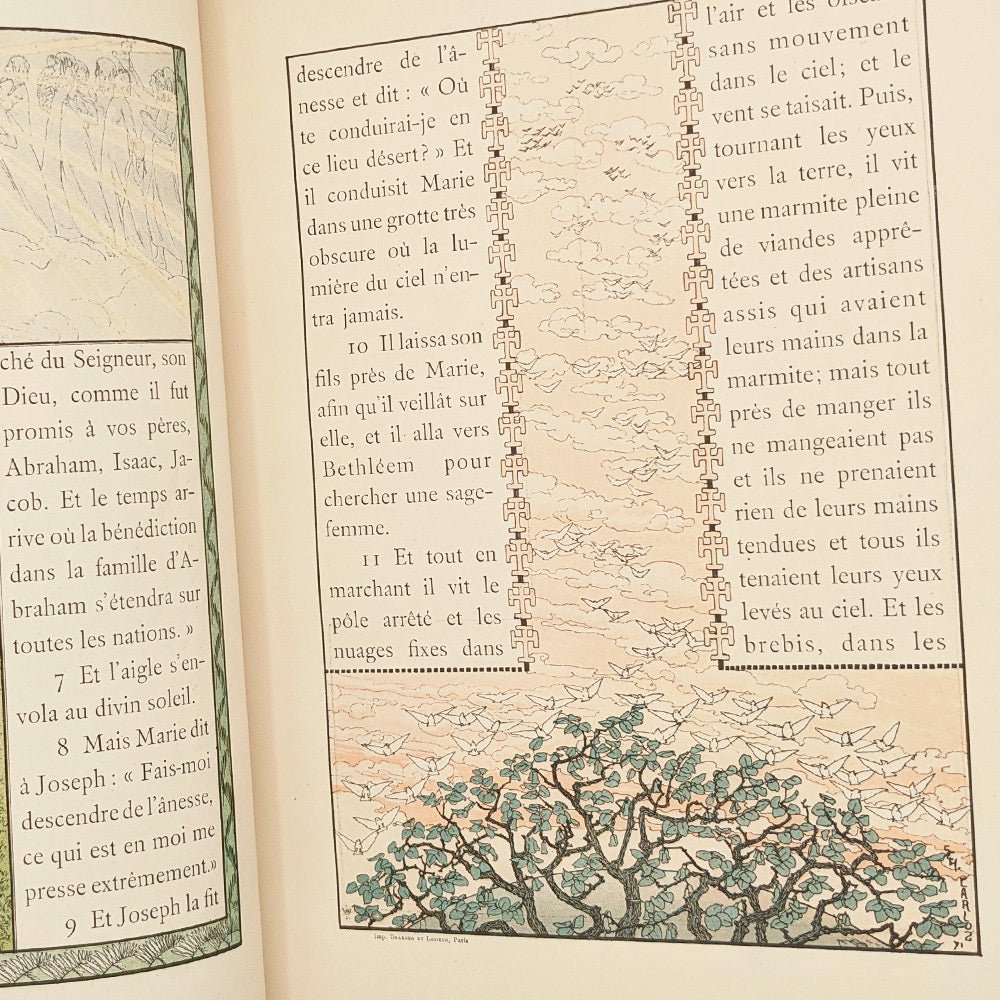 ché du Seigneur, son
Dieu, comme il fut
promis à vos pères,
Abraham, Isaac, Ja-
cob. Et le temps ar-
rive où la bénédiction
dans la famille d'A-
braham s'étendra sur
toutes les nations. »
7 Et l'aigle s'en-
vola au divin soleil.
8 Mais Marie dit
à Joseph : « Fais-moi
descendre de l'ânesse,
ce qui est en moi me
presse extrêmement.»
9 Et Joseph la fit
descendre de l'â-
nesse et dit : « Où
te conduirai-je en
ce lieu désert? » Et
il conduisit Marie
dans une grotte très
obscure où la lu-
mière du ciel n'en-
tra jamais.
10 Il laissa son
fils près de Marie,
afin qu'il veillât sur
elle, et il alla vers
Bethléem pour
chercher une sage-
femme.
11 Et tout en
marchant il vit le
pôle arrêté et les
nuages fixes dans
l'air et les
sans mouvement
dans le ciel; et le
vent se taisait. Puis,
tournant les yeux
vers la terre, il vit
une marmite pleine
de viandes apprê-
tées et des artisans
assis qui avaient
leurs mains dans la
marmite; mais tout
près de manger ils
ne mangeaient pas
et ils ne prenaient
rien de leurs mains
tendues et tous ils
tenaient leurs yeux
levés au ciel. Et les
brebis, dans les